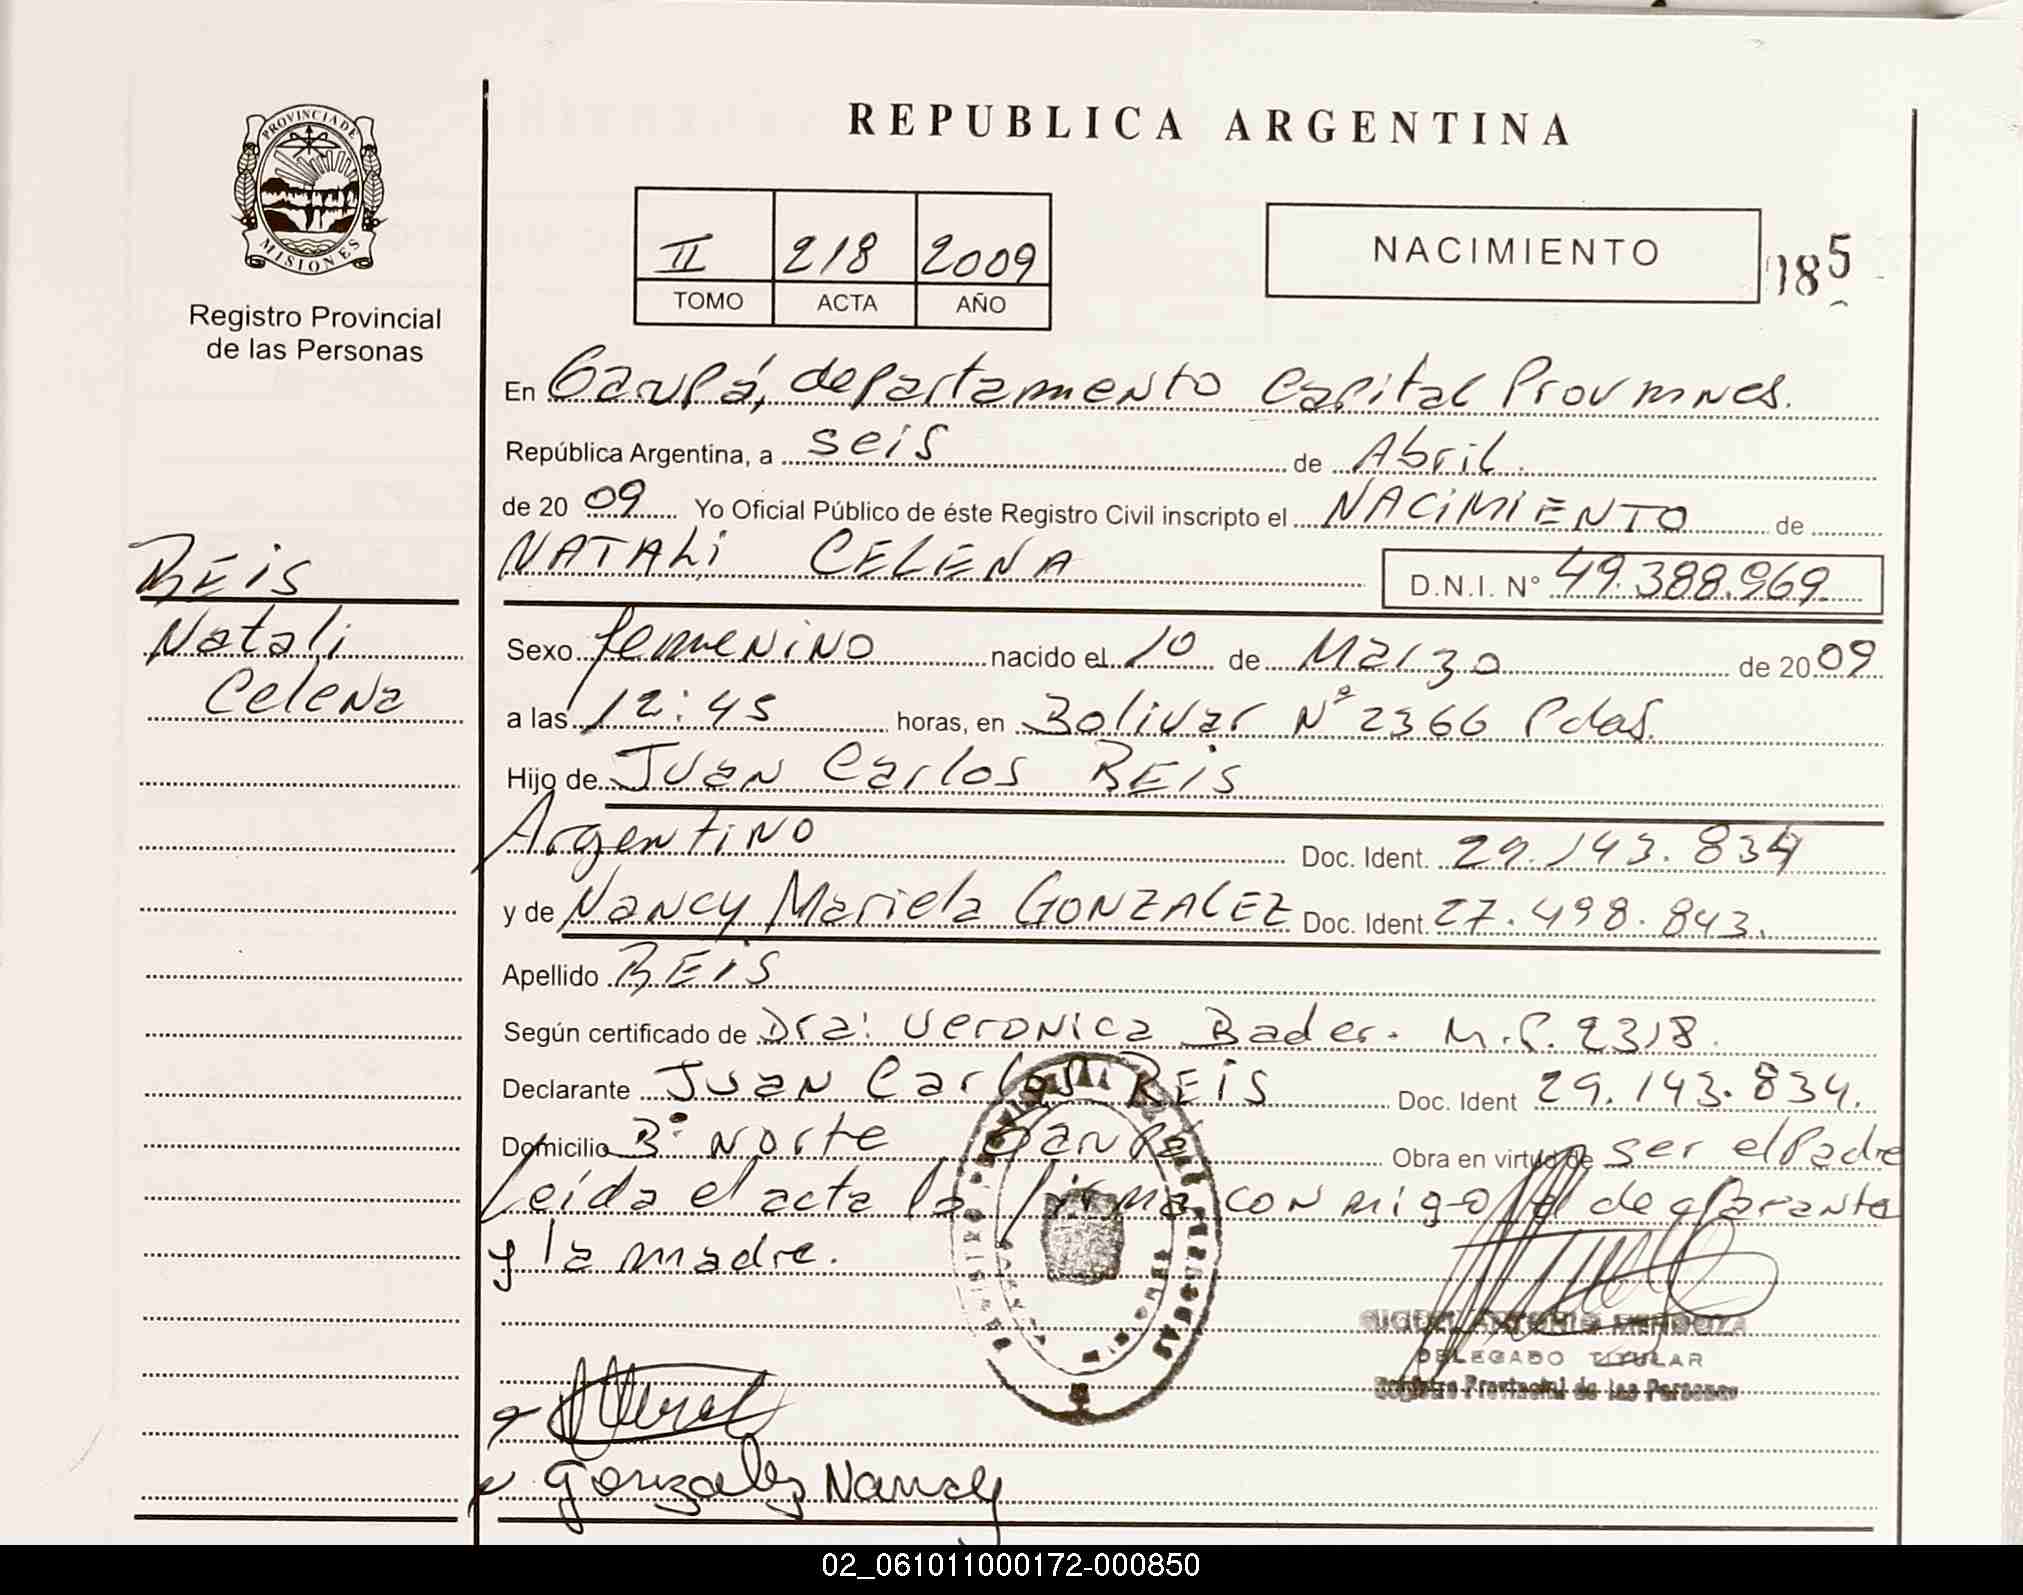 REPUBLICA ARGENTINA
PROVINCIA DE
MISIONES
Registro Provincial
de las Personas
II 218 2009
TOMO ACTA AÑO
NACIMIENTO
185
En Garupá, departamento Capital Prov mnes.
República Argentina, a seis de Abril.
de 2009 Yo Oficial Público de éste Registro Civil inscripto el NACIMIENTO de
REIS
Natali
Celena
NATALI CELENA D.N.I. N° 49.388.969
Sexo femenino nacido el 10 de Marzo de 2009
a las 12:45 horas, en Bolivar Nº 2366 Pdas.
Hijo de Juan Carlos REIS
Argentino Doc. Ident. 29.143.834
y de Nancy Mariela GONZALEZ Doc. Ident. 27.498.843.
Apellido REIS
Según certificado de Dra: Veronica Bader. M.P. 2318.
Declarante Juan Carlos REIS Doc. Ident 29.143.834.
Domicilio Bº Norte Garupá Obra en virtud de ser el Padre
Leída el acta la firma conmigo el declarante
y la madre.
MIGUEL ANTONIO MENDOZA
DELEGADO TITULAR
Registro Provincial de las Personas
Gonzalez Nancy
02_061011000172-000850